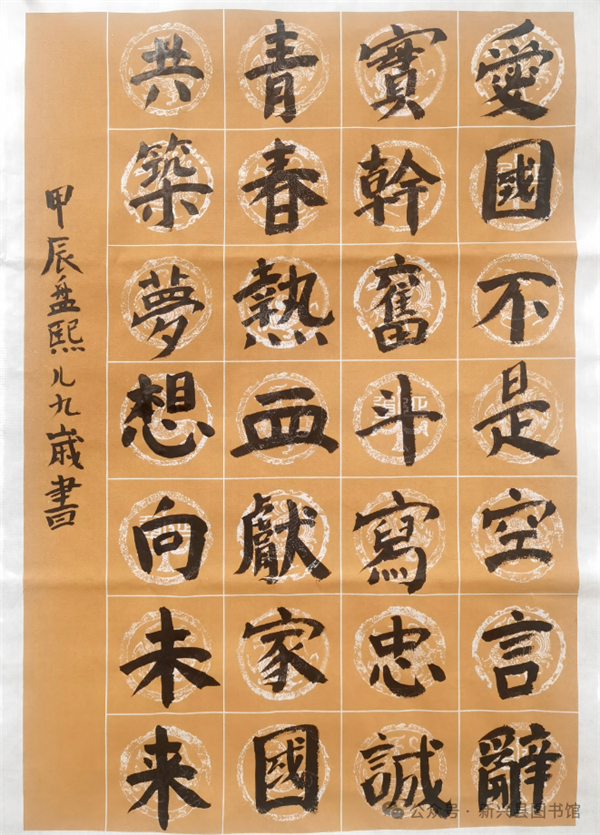 愛國不是空言辭
實幹奮斗寫忠誠
青春熱血獻家國
共築夢想向未来
甲辰孟熙儿九歲書
公众号·新兴县图书馆